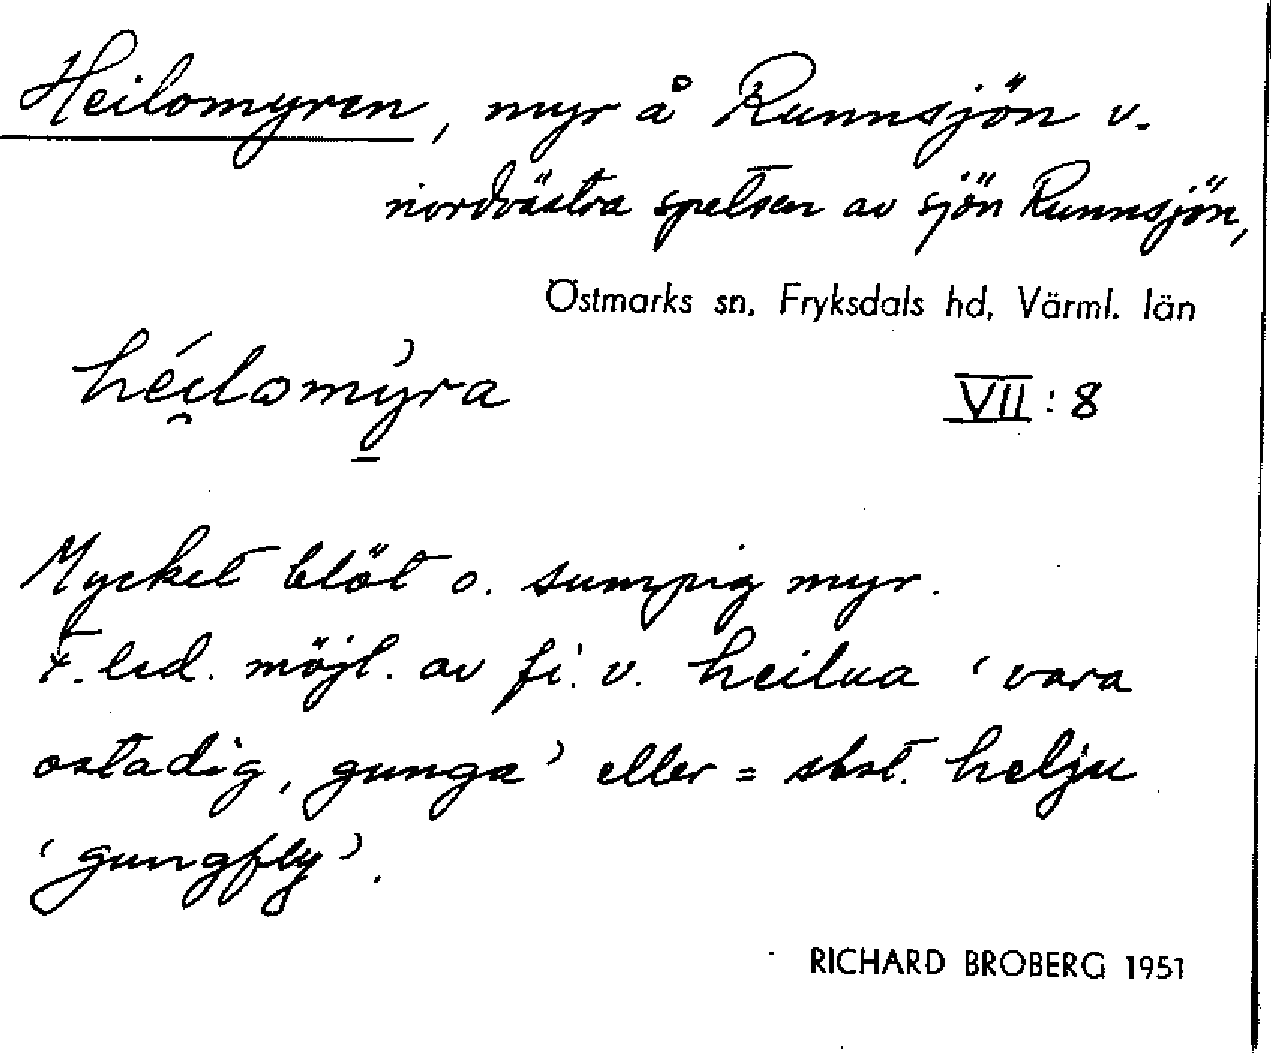 Heilomyren, myr å Runnsjön v.
nordvästra spetsen av sjön Runnsjön,
Östmarks sn, Fryksdals hd, Värml. län
héi̯lomy̠ra
VII : 8
Mycket blöt o. sumpig myr.
F. led. möjl. av fi. v. heilua 'vara
ostadig, gunga' eller = sbst. helju
'gungfly'.
RICHARD BROBERG 1951